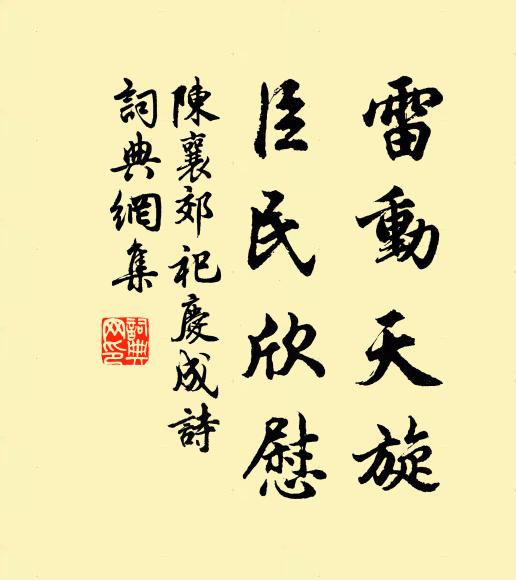 雷動天旋
臣民欣慰
陳襄郊祀慶成詩
詞典網集
詞典
网印